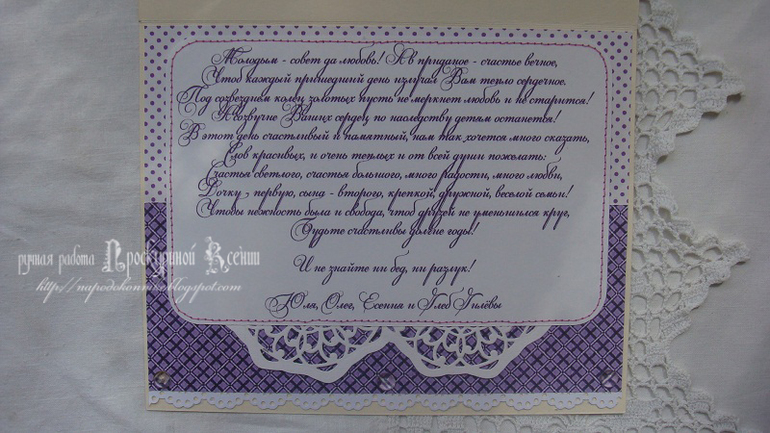 Молодым - совет да любовь! А в приданое - счастье вечное,
Чтоб каждый пришедший день излучал Вам тепло сердечное.
Под созвездием колец золотых пусть не меркнет любовь и не старится!
А созвучие Ваших сердец по наследству детям останется!
В этот день счастливый и памятный, нам так хочется много сказать,
Слов красивых, и очень теплых и от всей души пожелать:
Счастья светлого, счастья большого, много радости, много любви,
Дочку - первую, сына - второго, крепкой, дружной, веселой семьи!
Чтобы нежность была и свобода, чтоб друзей не уменьшился круг,
Будьте счастливы долгие годы!
И не знайте ни бед, ни разлук!
Юля, Олег, Есения и Глеб Гилёвы
ручная работа Проскуриной Ксении
http://napodokonnike.blogspot.com/